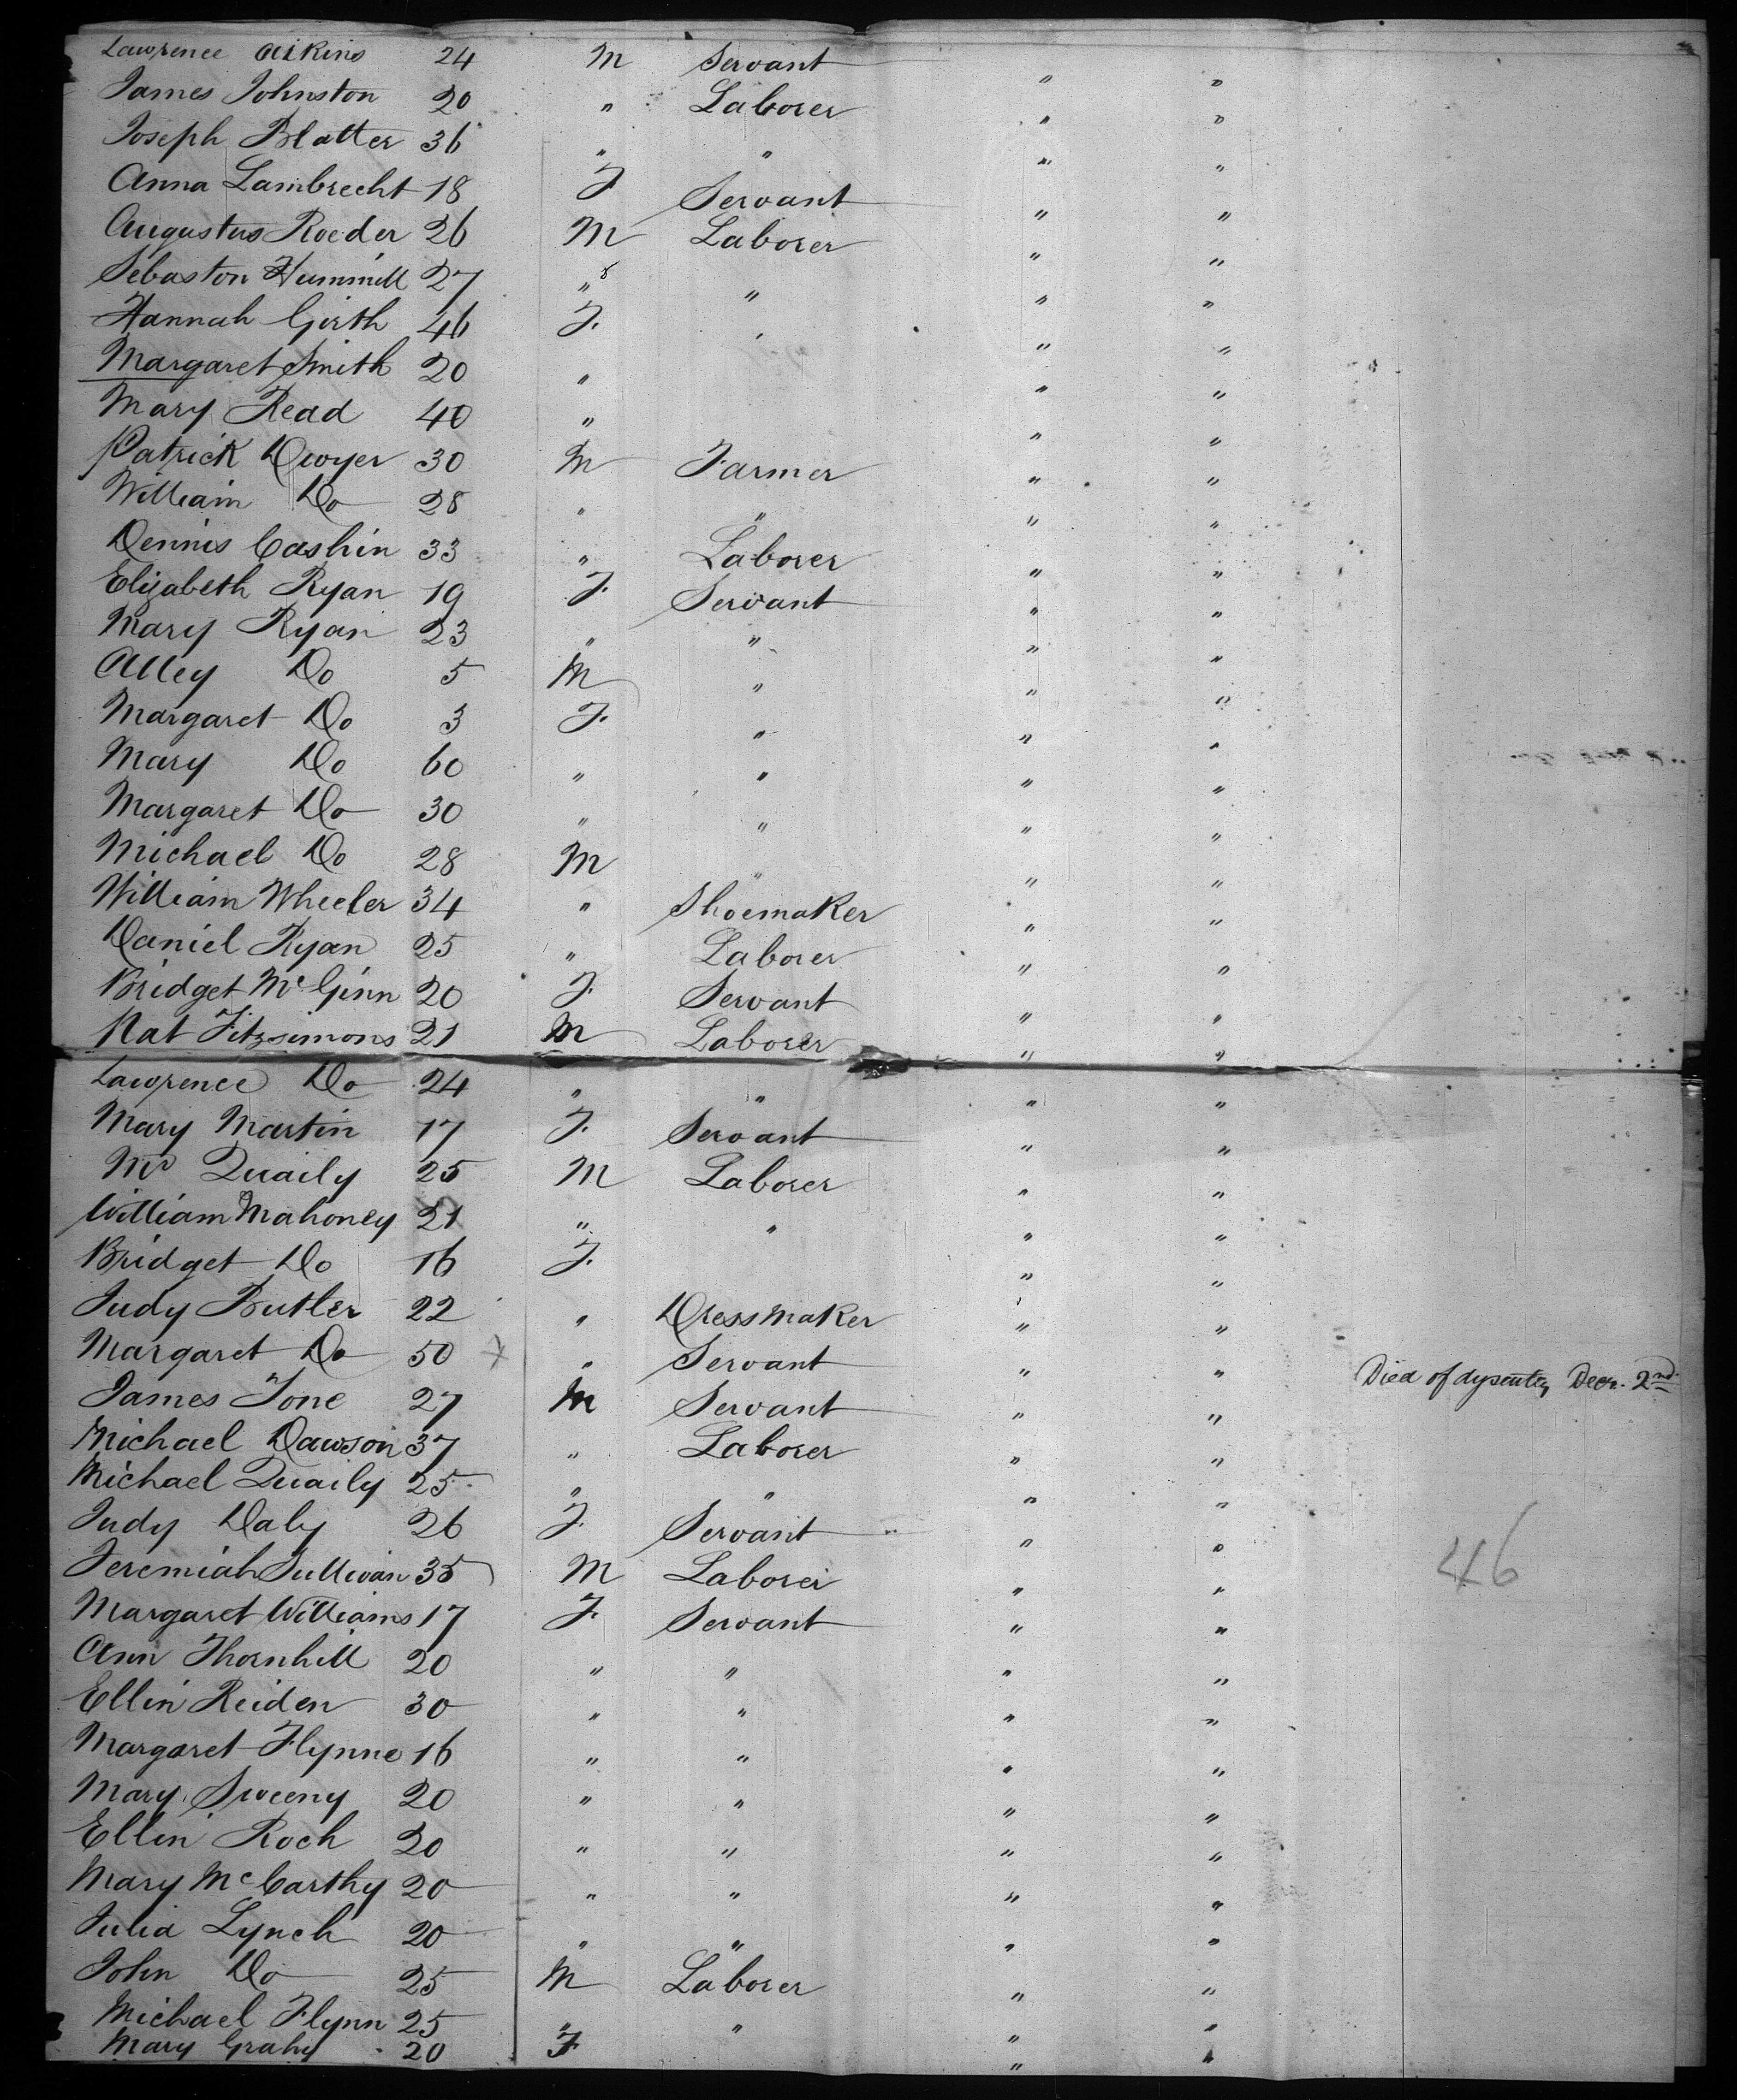 Lawrence Aikins 24 M Servant " "
James Johnston 20 " Laborer " "
Joseph Blatter 36 " " " "
Anna Lambrecht 18 F. Servant " "
Augustus Roeder 26 M Laborer " "
Sebaston Hummill 27 " " " "
Hannah Girth 46 F. " " "
Margaret Smith 20 " " "
Mary Read 40 " " "
Patrick Dwyer 30 M Farmer " "
William Do 28 " " " "
Dennis Cashin 33 " Laborer " "
Elizabeth Ryan 19 F. Servant " "
Mary Ryan 23 " " " "
Alley Do 5 M " " "
Margaret Do 3 F. " " "
Mary Do 60 " " " "
Margaret Do 30 " " " "
Michael Do 28 M " " "
William Wheeler 34 " Shoemaker " "
Daniel Ryan 25 " Laborer " "
Bridget McGinn 20 F. Servant " "
Nat Fitzsimons 21 M Laborer " "
Lawrence Do 24 " " " "
Mary Martin 17 F. Servant " "
Quaily 25 M Laborer " "
William Mahoney 21 " " " "
Bridget Do 16 F. " "
Judy Butler 22 " Dressmaker " "
Margaret Do 50 x " Servant " " Died of dysentery Decr. 2nd
James Tone 27 M Servant " "
Michael Dawson 37 " Laborer " "
Michael Quaily 25 " " " "
Judy Daly 26 F. Servant " "
Jeremiah Sullivan 35 M Laborer " " 46
Margaret Williams 17 F. Servant " "
Ann Thornhill 20 " " " "
Ellin Reiden 30 " " " "
Margaret Flynne 16 " " " "
Mary Sweeny 20 " " " "
Ellin Roch 20 " " " "
Mary McCarthy 20 " " " "
Julia Lynch 20 " " " "
John Do 25 M Laborer " "
Michael Flynn 25 " " " "
Mary Grahy 20 F " "